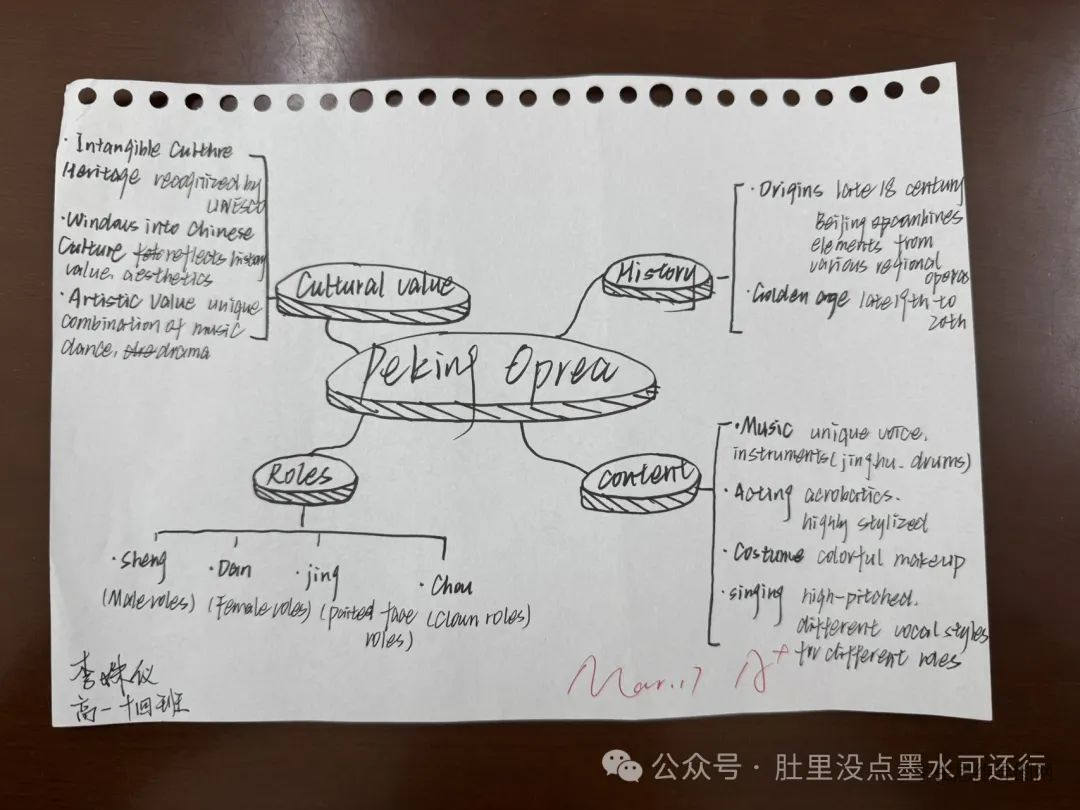 · Intangible Culthre
Heritage recognized by
UNESCO
· Windows into Chinese
Culture reflects history
value, aesthetics
· Artistic value unique
combination of music
dance, drama
Cultural value
History
· Origins late 18 century
Beijing combines
elements from
various regional
operas
· Golden age late 19th to
20th
Peking Oprea
Roles
· sheng
(Male roles)
· Dan
(Female roles)
· jing
(painted face
roles)
· Chou
(Clown roles)
content
· Music unique voice,
instruments (jinghu drums)
· Acting acrobatics.
highly stylized
· Costume colorful makeup
· singing high-pitched.
different vocal styles
for different roles
李姝仪
高一十四班
Mar.17 A+
公众号 · 肚里没点墨水可还行